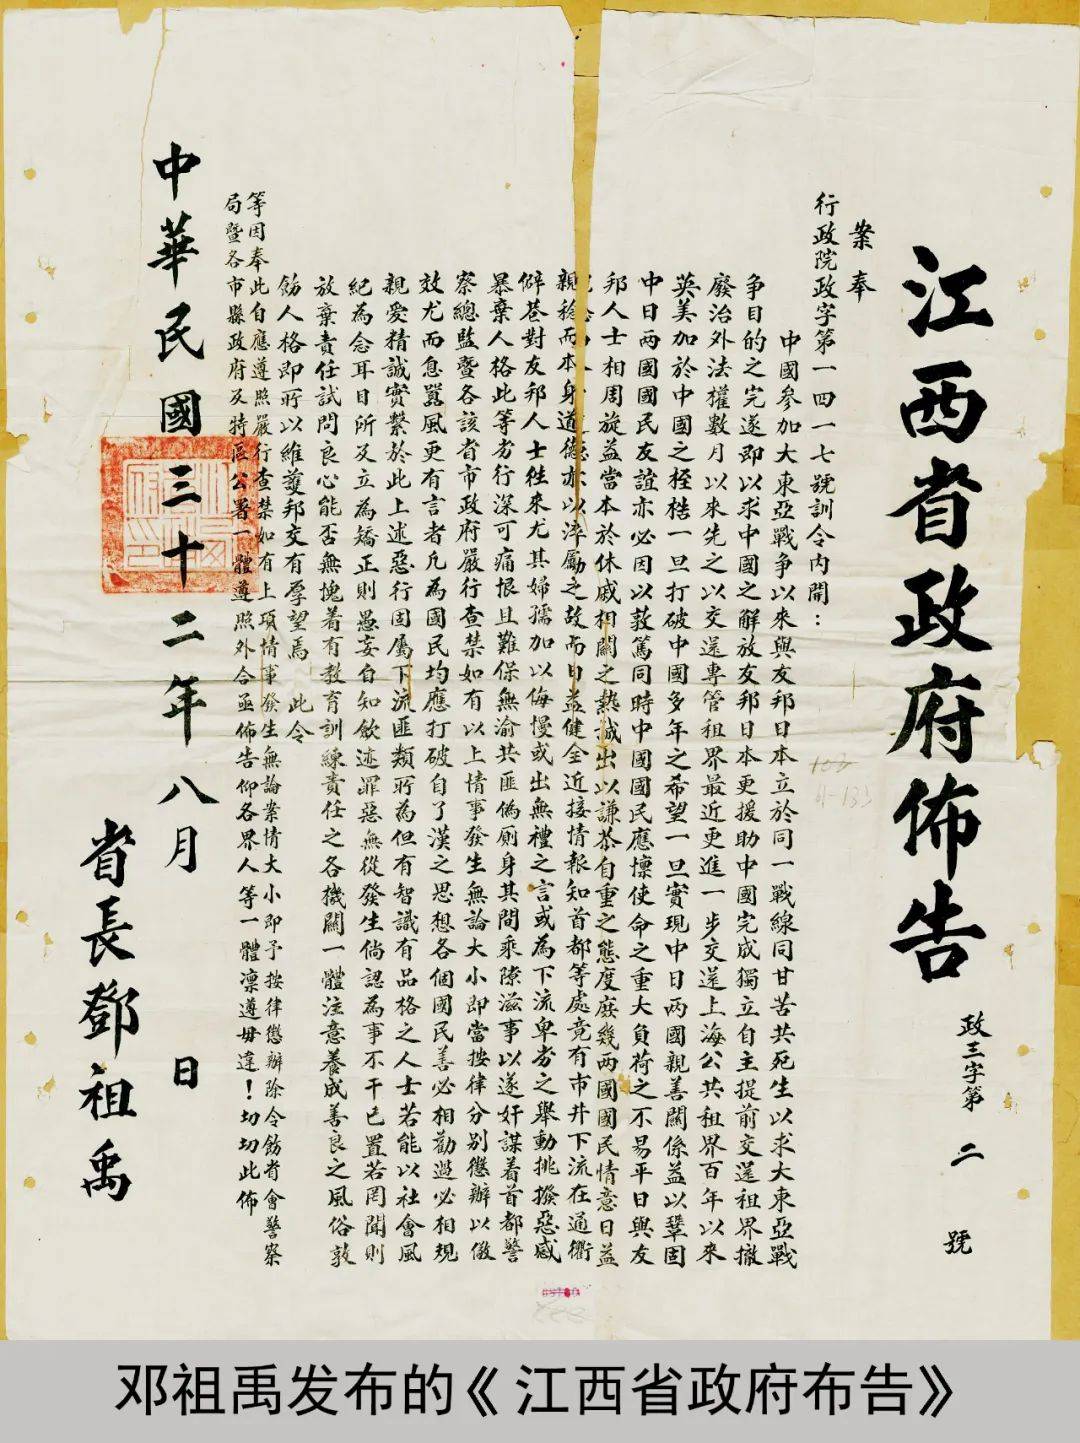 江西省政府佈告
政三字第 二 號
案奉
行政院政字第一四一七號訓令内開：
中國參加大東亞戰争以來與友邦日本立於同一戰線同甘苦共死生以求大東亞戰
争目的之完遂即以求中國之解放友邦日本更援助中國完成獨立自主提前交還租界撤
廢治外法權數月以來先之以交還專管租界最近更進一步交還上海公共租界百年以來
英美加於中國之桎梏一旦打破中國多年之希望一旦實現中日两國親善關係益以鞏固
中日两國國民友誼亦必因以敦篤同時中國國民應懍使命之重大負荷之不易平日與友
邦人士相周旋益當本於休戚相關之熱誠出以謙恭自重之態度庶幾两國國民情意日益
親稔而本身道德亦以淬勵之故而日益健全近接情報知首都等處竟有市井下流在通衢
僻巷對友邦人士徃來尤其婦孺加以侮慢或出無禮之言或為下流卑劣之舉動挑撥惡感
暴棄人格此等劣行深可痛恨且難保無渝共匪偽廁身其間乘隙滋事以遂奸謀着首都警
察總監暨各該省市政府嚴行查禁如有以上情事發生無論大小即當按律分别懲辦以儆
效尤而息囂風更有言者凡為國民均應打破自了漢之思想各個國民善必相勸過必相規
親愛精誠實繫於此上述惡行固屬下流匪類所為但有智識有品格之人士若能以社會風
紀為念耳目所及立為矯正則愚妄自知歛迹罪惡無從發生倘認為事不干已置若罔聞則
放棄責任試問良心能否無愧着有教育訓練責任之各機關一體注意養成善良之風俗敦
飭人格即所以維護邦交有厚望焉 此令
等因奉此自應遵照嚴行查禁如有上項情事發生無論案情大小即予按律懲辦除令飭省會警察
局暨各市縣政府及特區公署一體遵照外合亟佈告仰各界人等一體凛遵毋違！切切此佈
中華民國三十二年八月 日
省長鄧祖禹
邓祖禹发布的《江西省政府布告》